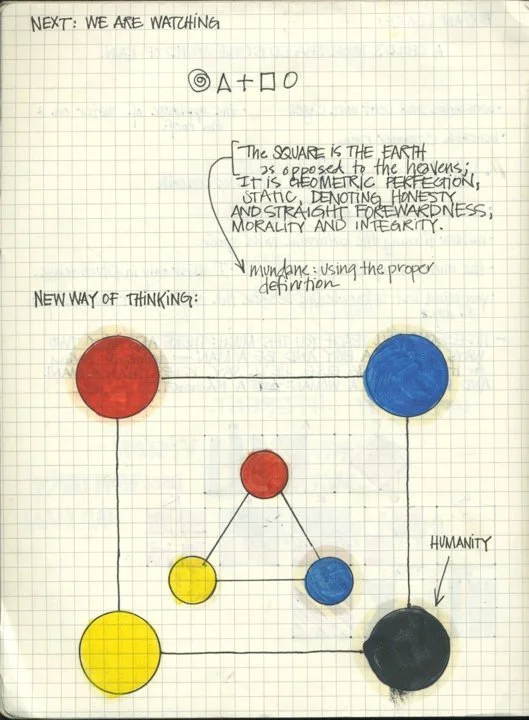 NEXT: WE ARE WATCHING
The SQUARE IS THE EARTH
as opposed to the heavens;
IT IS GEOMETRIC PERFECTION,
STATIC, DENOTING HONESTY
AND STRAIGHT FOREWARDNESS,
MORALITY AND INTEGRITY.
mundane: using the proper
definition
NEW WAY OF THINKING:
HUMANITY